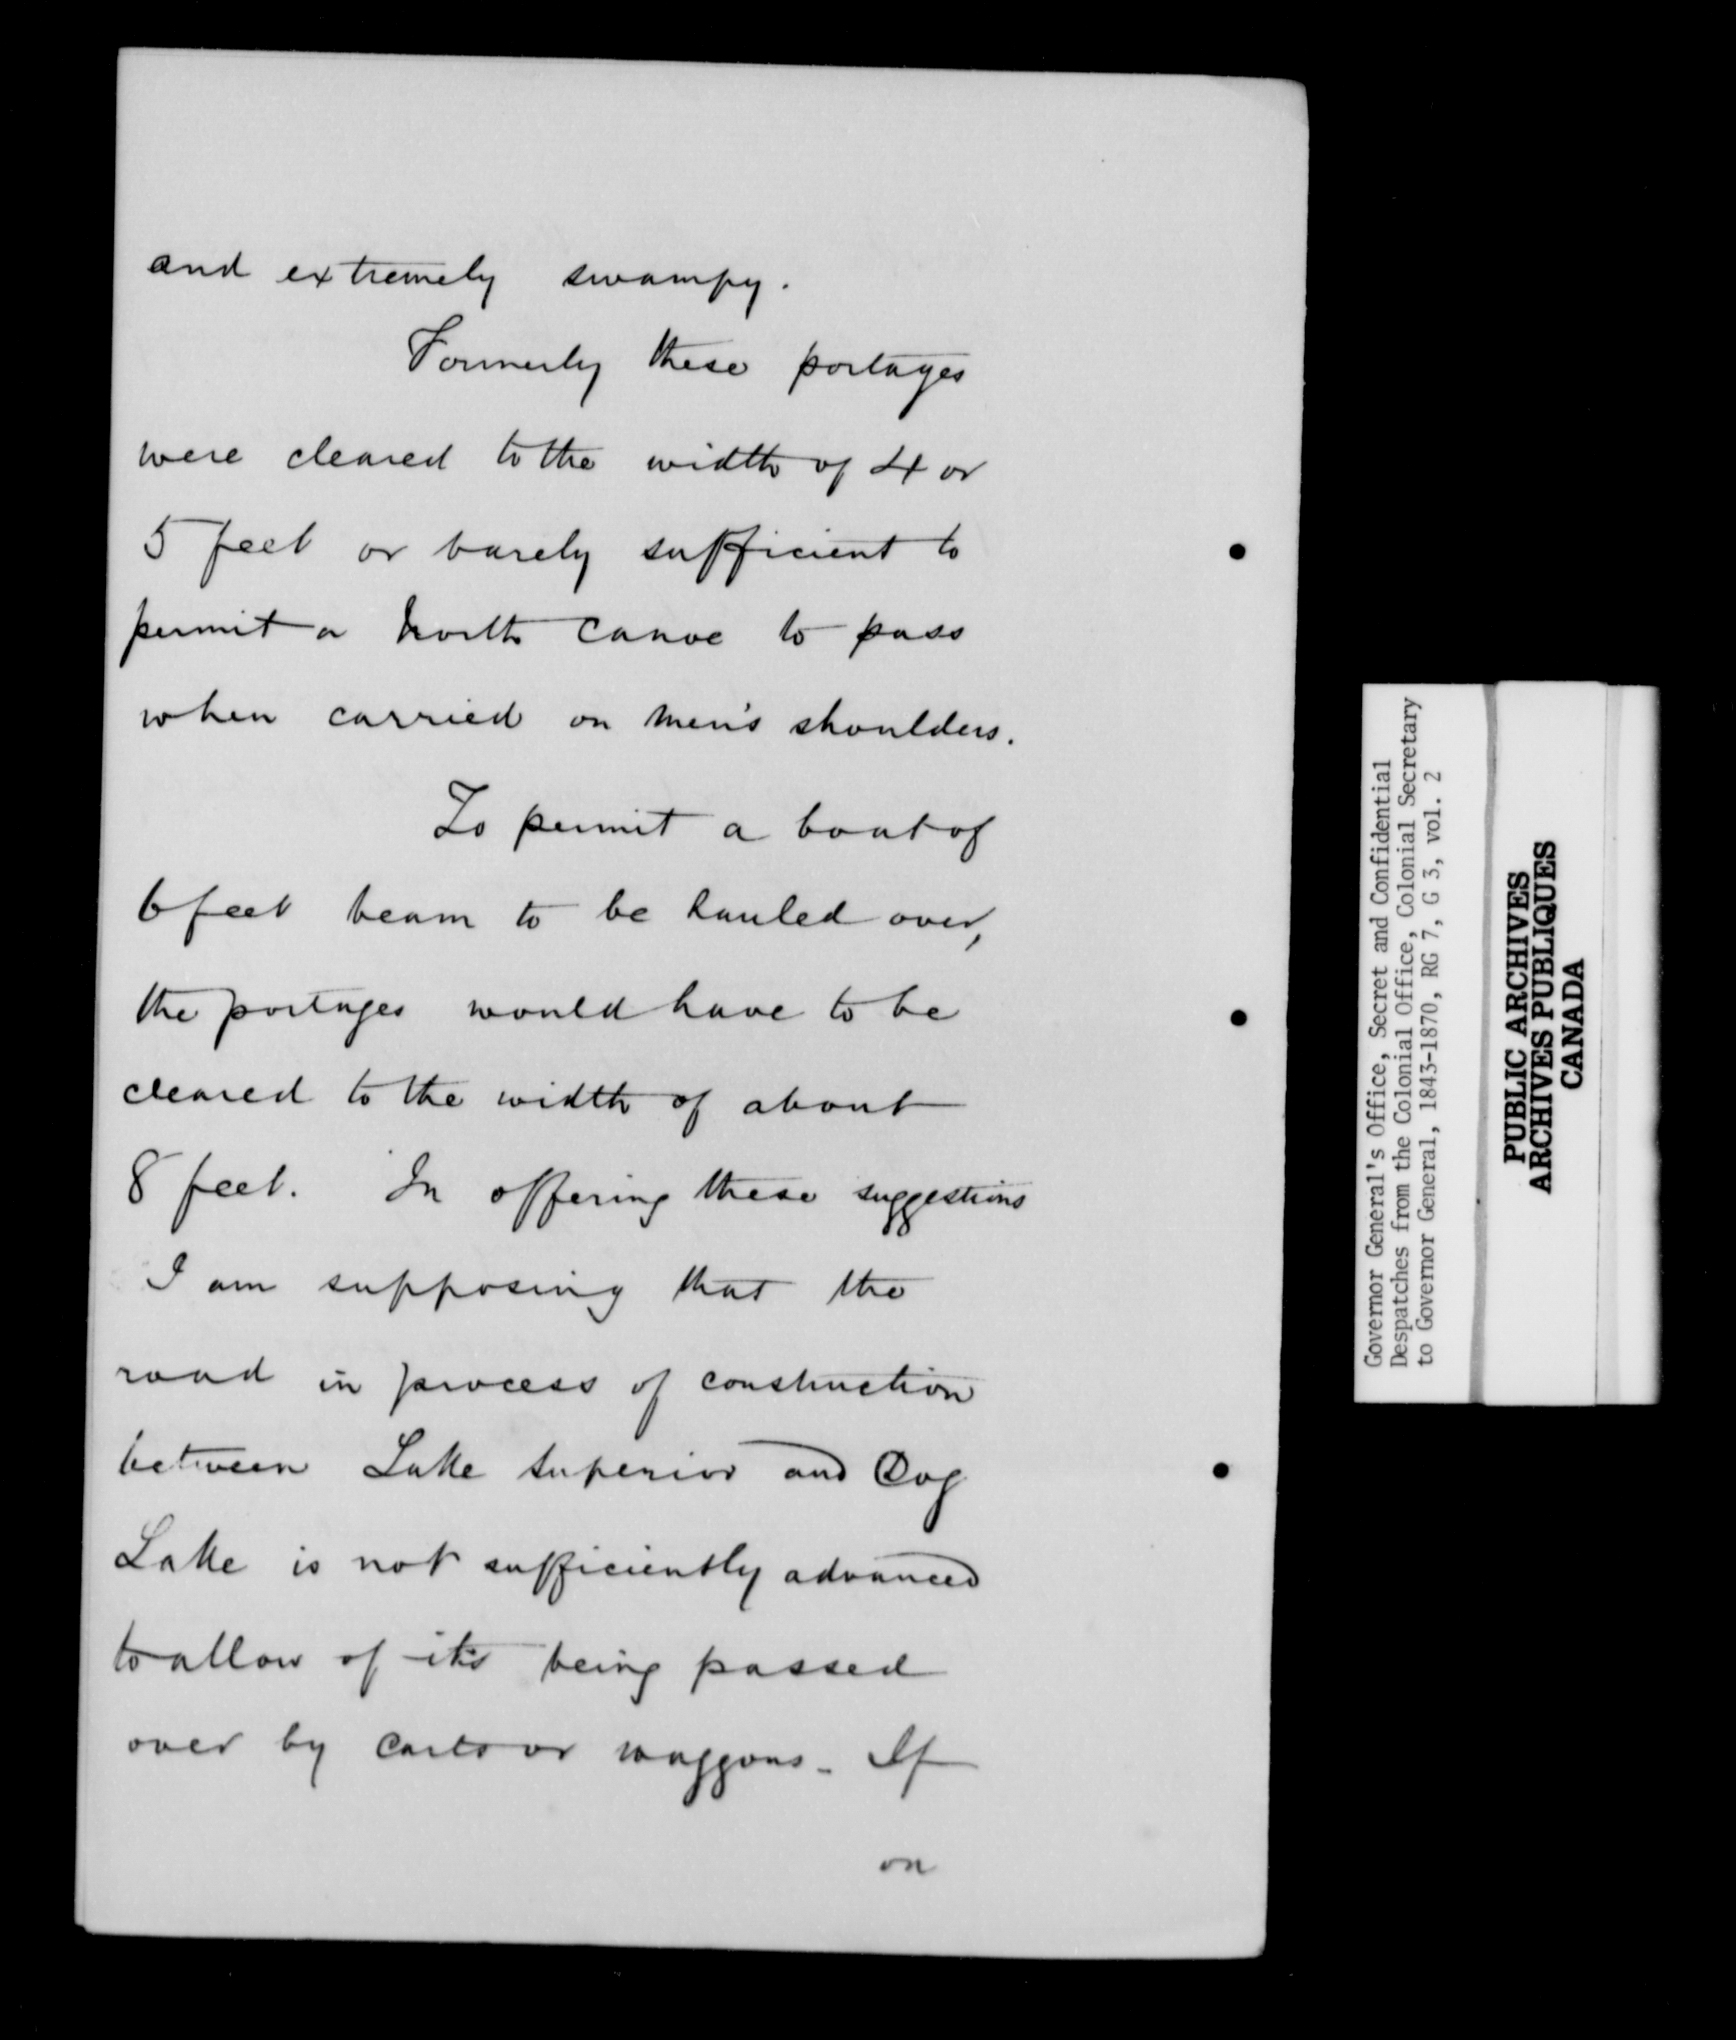 and extremely swampy.
Formerly these portages
were cleared to the width of 4 or
5 feet or barely sufficient to
permit a North Canoe to pass
when carried on men's shoulders.
To permit a boat of
6 feet beam to be hauled over,
the portages would have to be
cleared to the width of about
8 feet. In offering these suggestions
I am supposing that the
road in process of construction
between Lake Superior and Dog
Lake is not sufficiently advanced
to allow of its being passed
over by carts or waggons - If
on
Governor General's Office, Secret and Confidential
Despatches from the Colonial Office, Colonial Secretary
to Governor General, 1843-1870, RG 7, G 3, vol. 2
PUBLIC ARCHIVES
ARCHIVES PUBLIQUES
CANADA